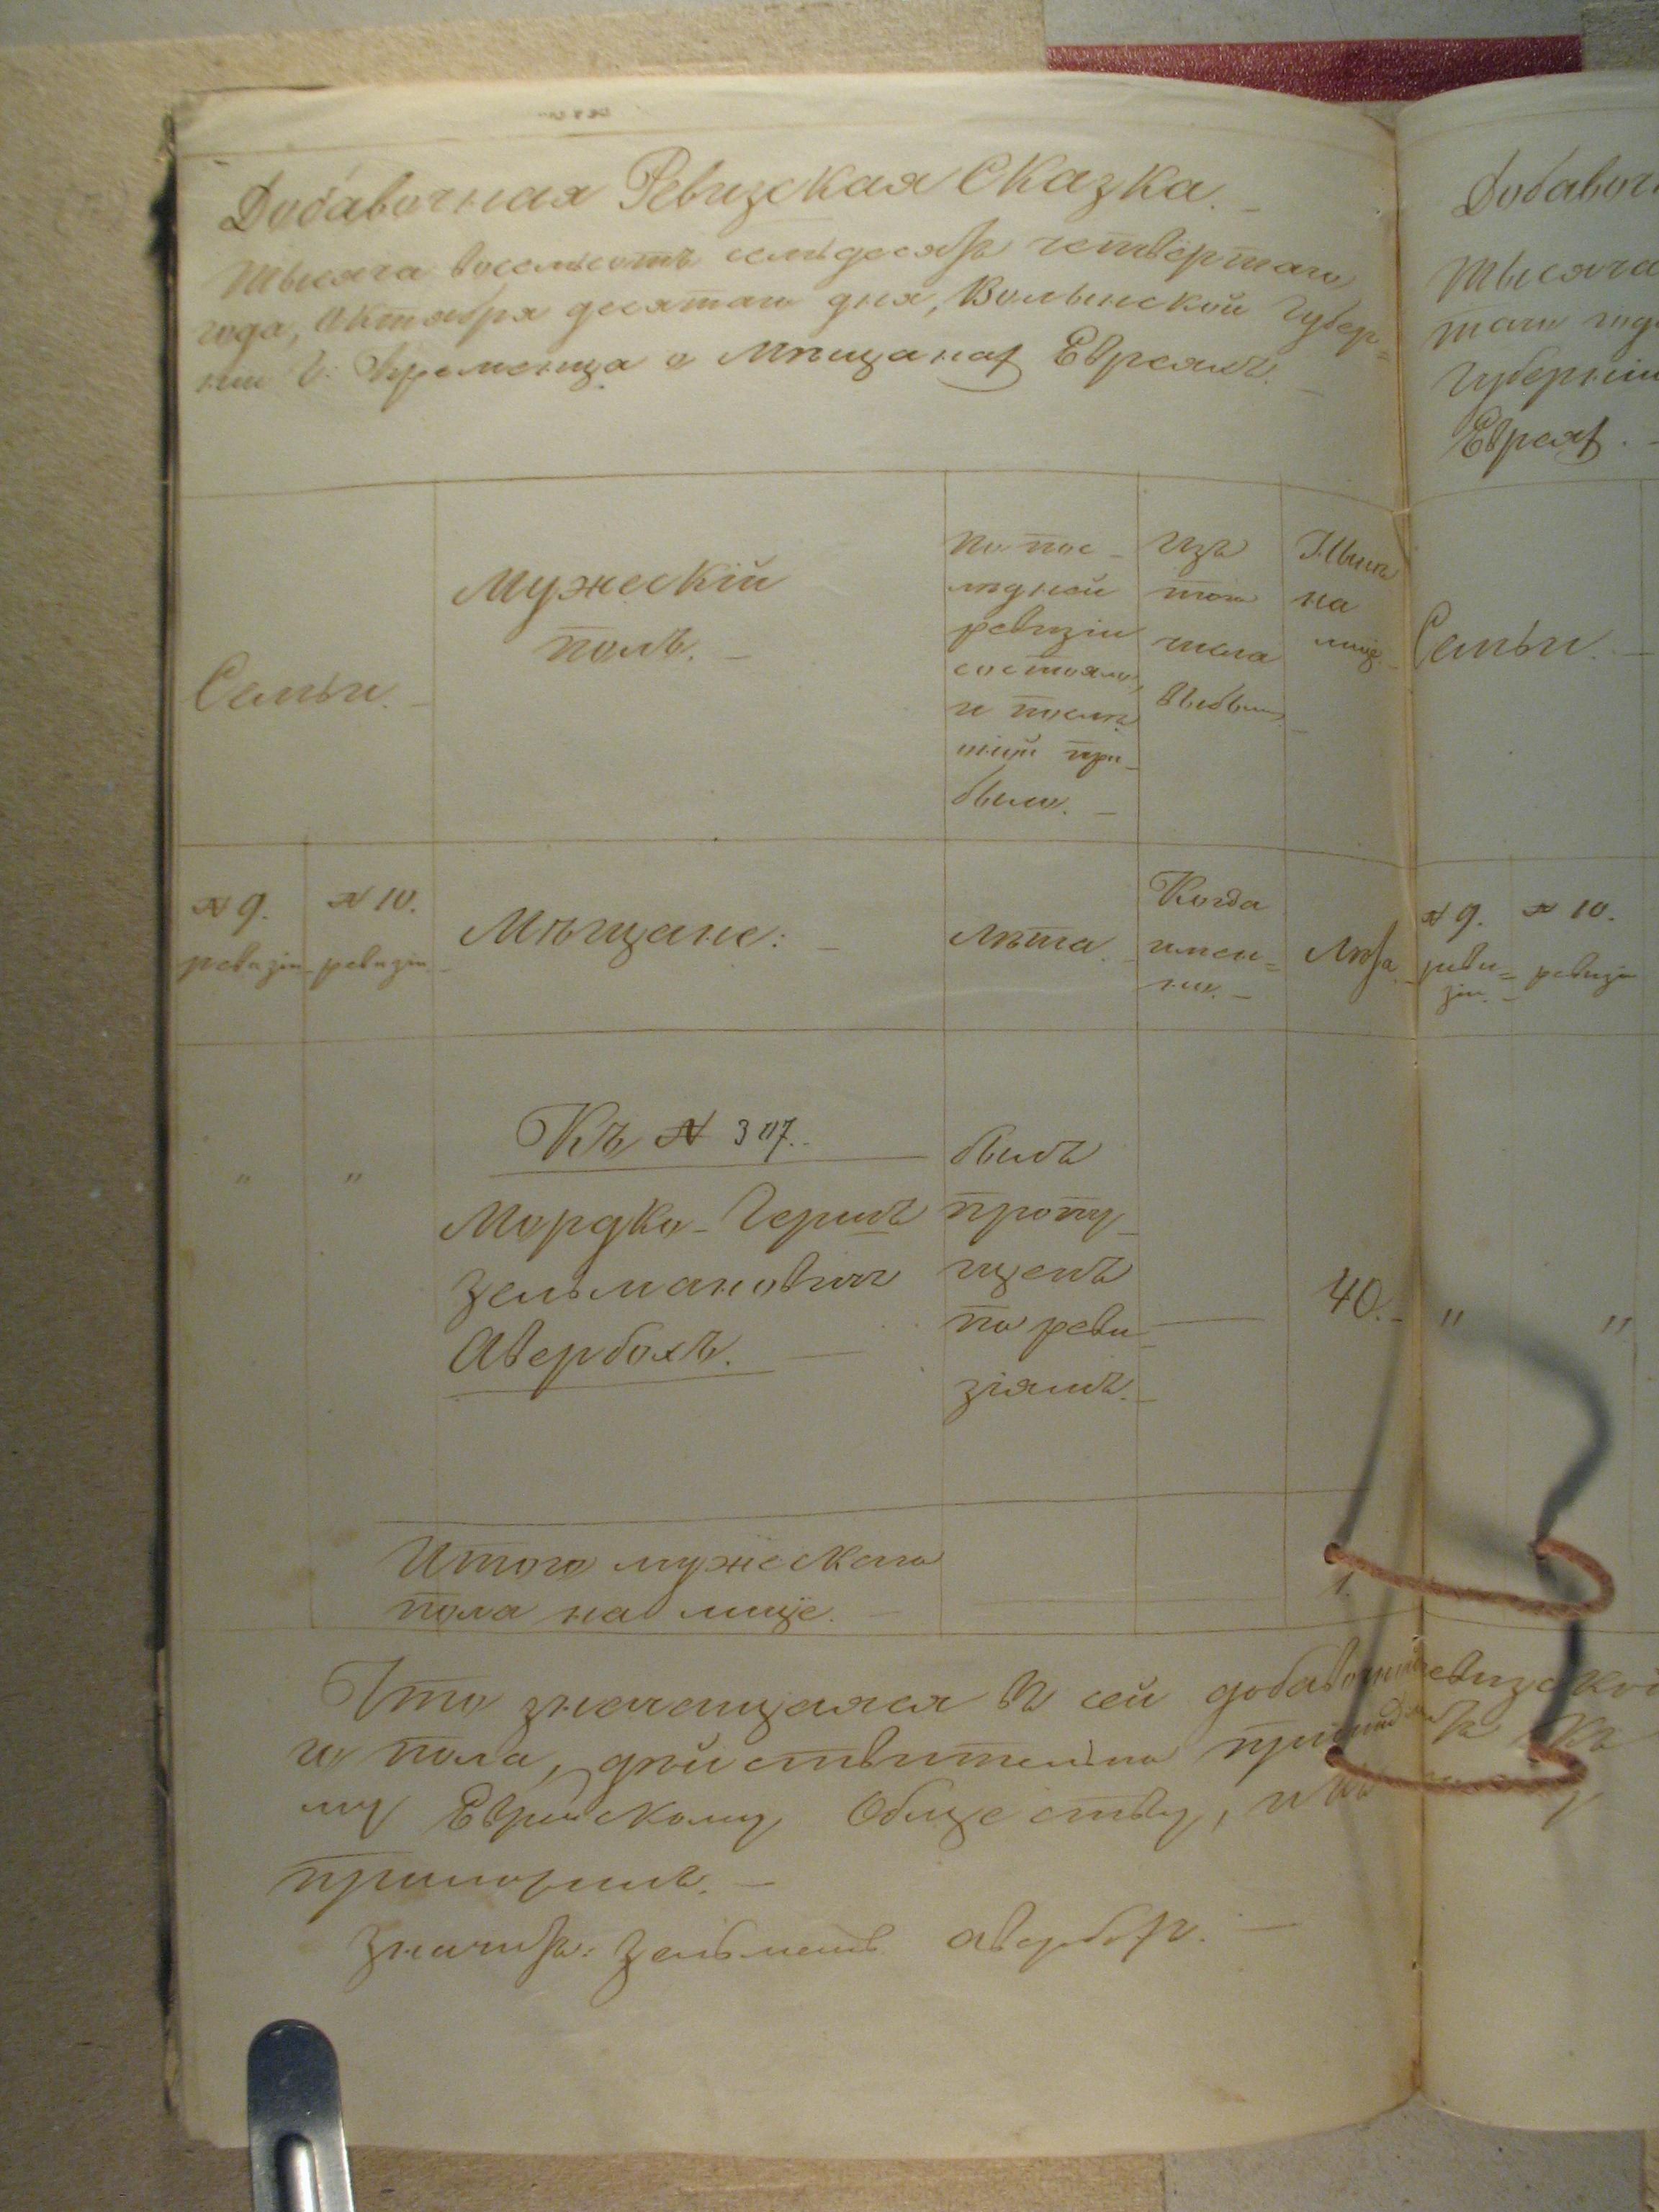 Добавочная Ревизская Сказка.
Тысяча восемьсотъ семьдесятъ четвёртаго
года, Октября десятаго дня, Волынской Губер=
ніи г. Кременца о Мѣщанахъ Евреяхъ.
Семьи.
Мужескій
полъ.
По пос-
лѣдней
ревизіи
состояло,
и послѣ
при-
было.
Изъ
того
числа
выбыло.
Нынѣ
на
лице.
№ 9.
ревизіи
№ 10.
ревизіи
Мѣщане:
Лѣта.
Когда
имен=
но.
Лѣта.
" "
Къ № 307.
Мордко-Гершъ
Зельмановичъ
Авербохъ.
былъ
пропу-
щенъ
по реви-
зіямъ.
40.
Итого мужескаго
пола на лице.
1.
Что значащаяся въ сей
пола, дѣйствительно
му Еврейскому Обществу, и
Зельманъ Авербухъ.
Добавоч
Тысяча
таго года
Губерніи
Евреяхъ.
Семьи.
№ 9.
реви=
зіи.
№ 10.
ревизіи
" "